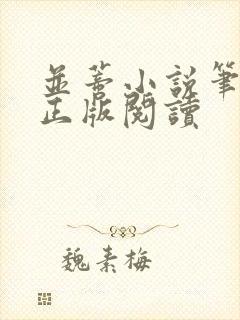 並蒂小說筆
正版閱讀
魏素梅